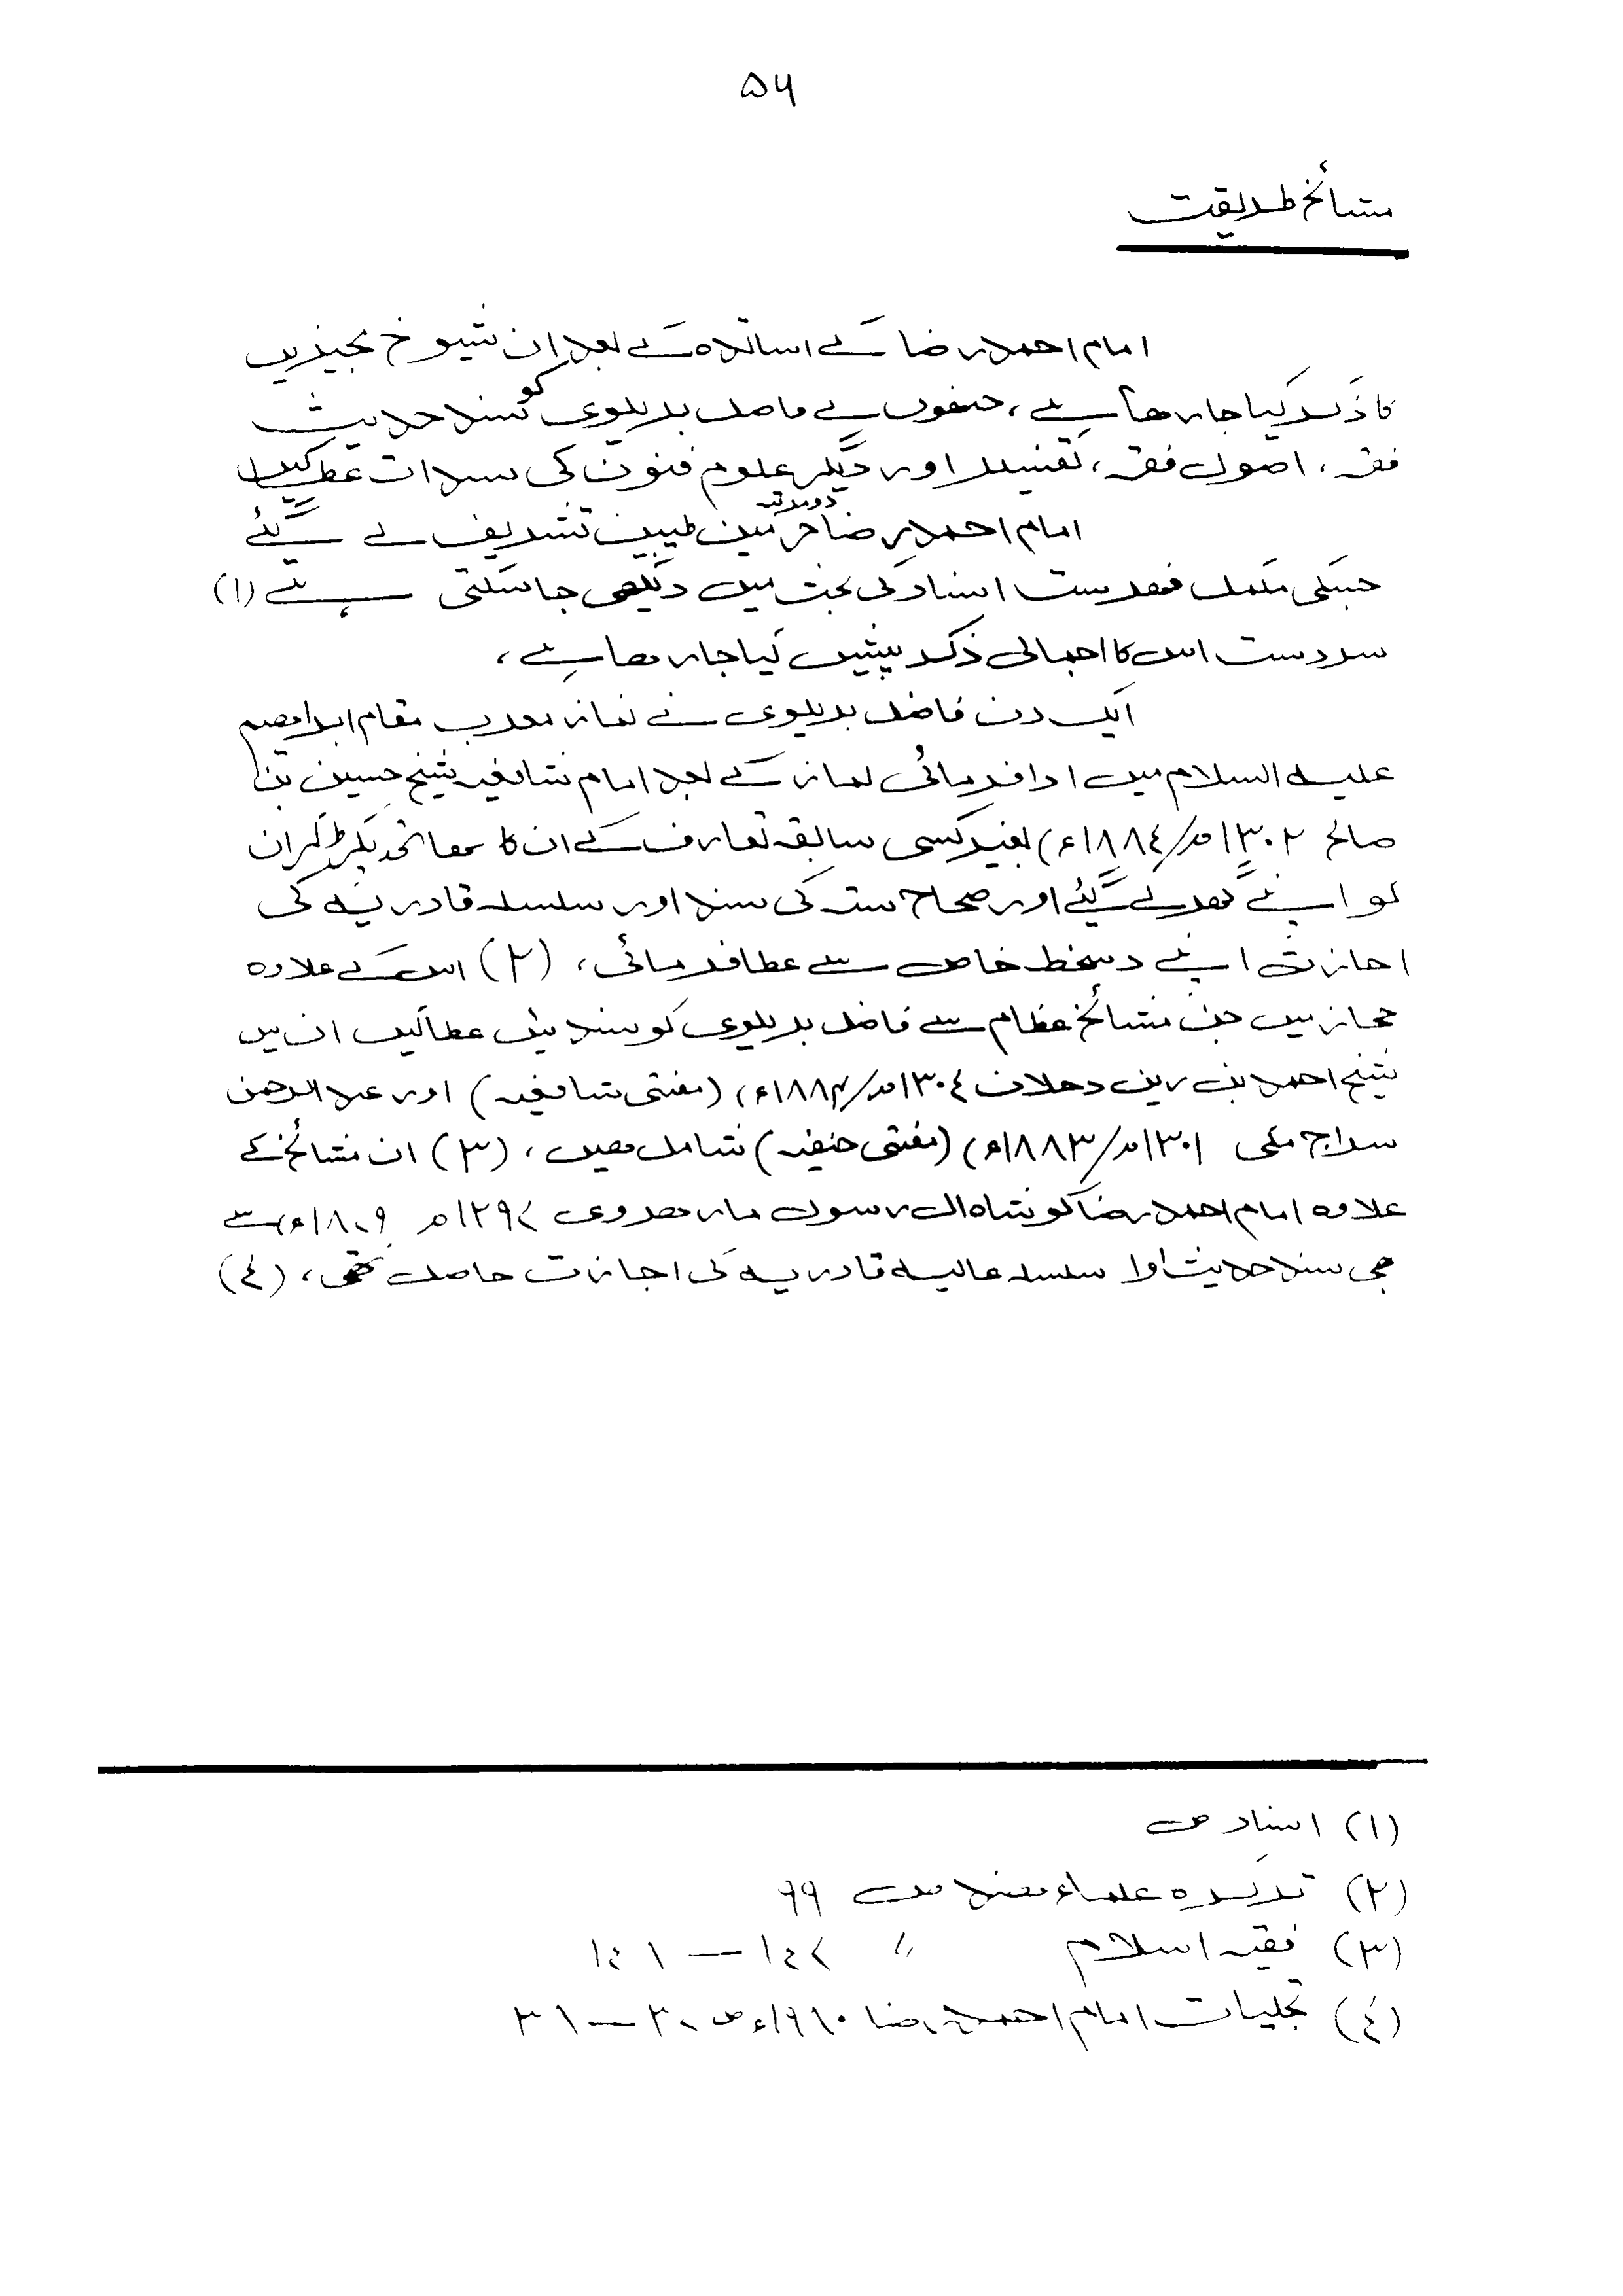 ۵۶
مشائخ طریقت
امام احمد رضا کے اساتذہ کے بعد ان شیوخ مجیذیں
کا ذکر کیا جا رہا ہے، جنھوں نے فاضل بریلوی کو سند حدیث
فقہ، اصول فقہ، تفسیر اور دیگر علوم فنون کی سندات عطا کیں
دو مرتبہ
امام احمد رضا حرمین طیبین تشریف لے گئے
جسکی مکمل فہرست اسناد کی بحث میں دیکھی جا سکتی ہے (۱)
سردست اس کا اجمالی ذکر پیش کیا جا رہا ہے،
ایک دن فاضل بریلوی نے نماز مغرب مقام ابراہیم
علیہ السلام میں ادا فرمائی نماز کے بعد امام شافعیہ شیخ حسین بن
صالح ۱۳۰۲ھ/۱۸۸٤ء) بغیر کسی سابقہ تعارف کے ان کا ہاتھ پکڑ کر ان
کو اپنے گھر لے گئے اور صحاح ستہ کی سند اور سلسلہ قادریہ کی
اجازت اپنے دستخط خاص سے عطا فرمائی، (۲) اس کے علاوہ
حجاز میں جن مشائخ عظام سے فاضل بریلوی کو سندیں عطا کیں ان میں
شیخ احمد بن زین دحلان ۱۳۰٤ھ/۱۸۸۶ء، (مفتی شافعیہ) اور عبدالرحمن
سراج مکی ۱۳۰۱ھ/۱۸۸۳ء) (مفتی حنفیہ) شامل ہیں، (۳) ان مشائخ کے
علاوہ امام احمد رضا کو شاہ ال رسول مارہروی ۱۲۹۷ھ ۱۸۷۹ء سے
بھی سند حدیث اور سلسلہ عالیہ قادریہ کی اجازت حاصل تھی، (٤)
(۱) اسناد ص
(۲) تذکرہ علماء ہند ص ۹۹
(۳) فقیہ اسلام 〃 ۱٤۲ — ۱٤۱
(٤) تجلیات امام احمد رضا ص ۳۰ — ۳۱